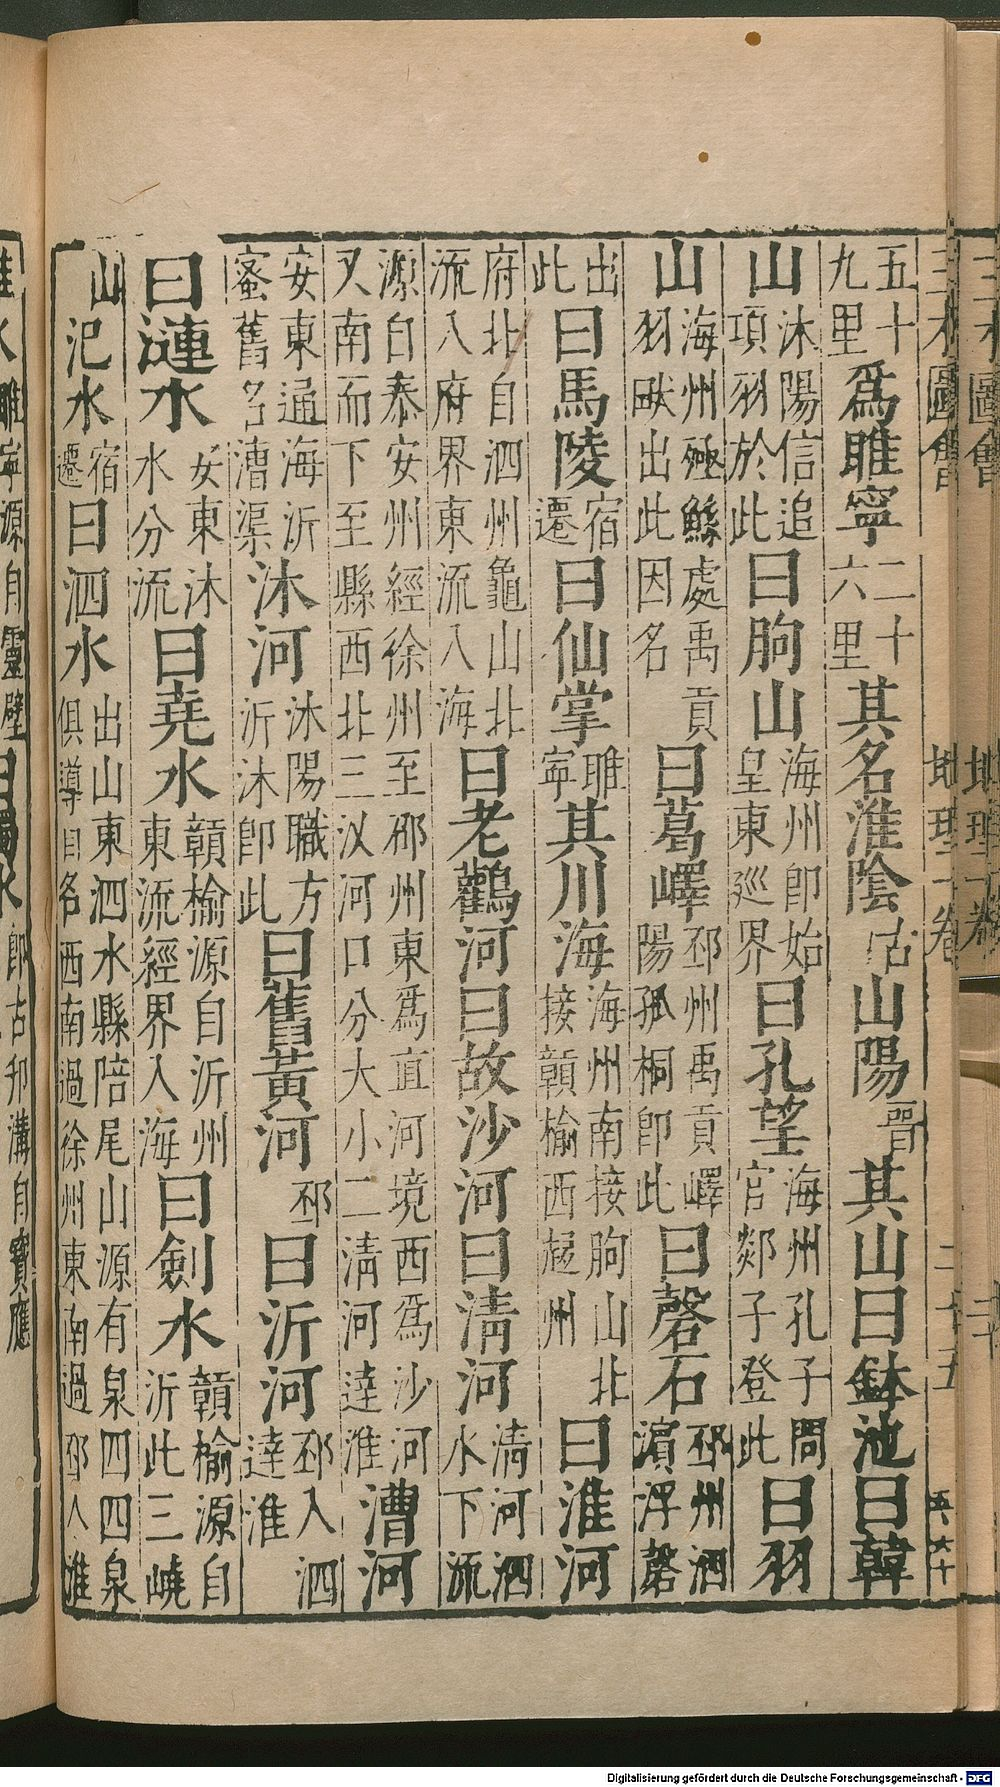 三才圖會　地理十卷　二十五　五六十
五十九里爲睢寧二十六里其名淮陰古山陽晉其山曰鉢池曰韓
山沐陽信追項羽於此曰朐山海州即始皇東廵界曰孔望海州孔子問官郯子登此曰羽
山海州殛鯀處禹貢羽畎出此因名曰葛嶧邳州禹貢嶧陽孤桐即此曰磬石邳州泗濵浮磬
出此曰馬陵宿遷曰仙掌睢寧其川海海州南接朐山北接贛榆西起州曰淮河
府北自泗州龜山北流入府界東流入海曰老鸛河曰故沙河曰清河清河泗水下流
源自泰安州經徐州至邳州東爲直河境西爲沙河又南而下至縣西北三汊河口分大小二清河達淮漕河
安東通海沂蚤舊名漕渠沐河沐陽職方沂沐即此曰舊黃河邳曰沂河邳入泗達淮
曰漣水安東沐水分流曰堯水贛榆源自沂州東流經界入海曰劍水贛榆源自沂此三嶢
山汜水宿遷曰泗水出山東泗水縣陪尾山源有泉四四泉俱導因名西南過徐州東南過邳入淮
水睢寧源自靈壁曰水即古邗溝自寶應
Digitalisierung gefördert durch die Deutsche Forschungsgemeinschaft - DFG